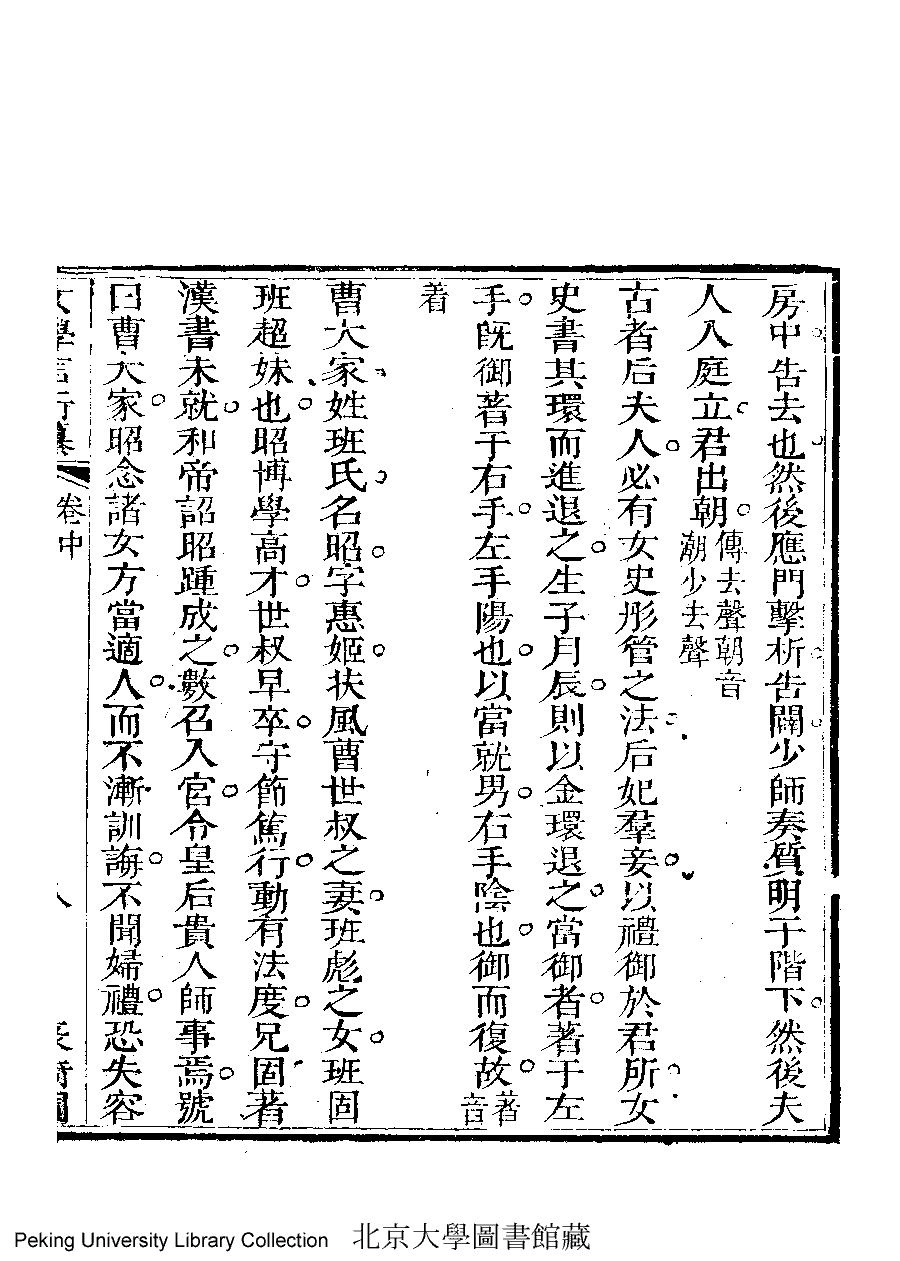 房中告去也然後應門擊柝告闢少師奏質明于階下然後夫
人入庭立君出朝傳去聲朝音潮少去聲
古者后夫人必有女史彤管之法后妃羣妾以禮御於君所女
史書其環而進退之生子月辰則以金環退之當御者著于左
手既御著于右手左手陽也以當就男右手陰也御而復故著音
着
曹大家姓班氏名昭字惠姬扶風曹世叔之妻班彪之女班固
班超妹也昭博學高才世叔早卒守節篤行動有法度兄固著
漢書未就和帝詔昭踵成之數召入宮令皇后貴人師事焉號
曰曹大家昭念諸女方當適人而不漸訓誨不聞婦禮恐失容
女學言行纂 卷中 八
Peking University Library Collection 北京大學圖書館藏